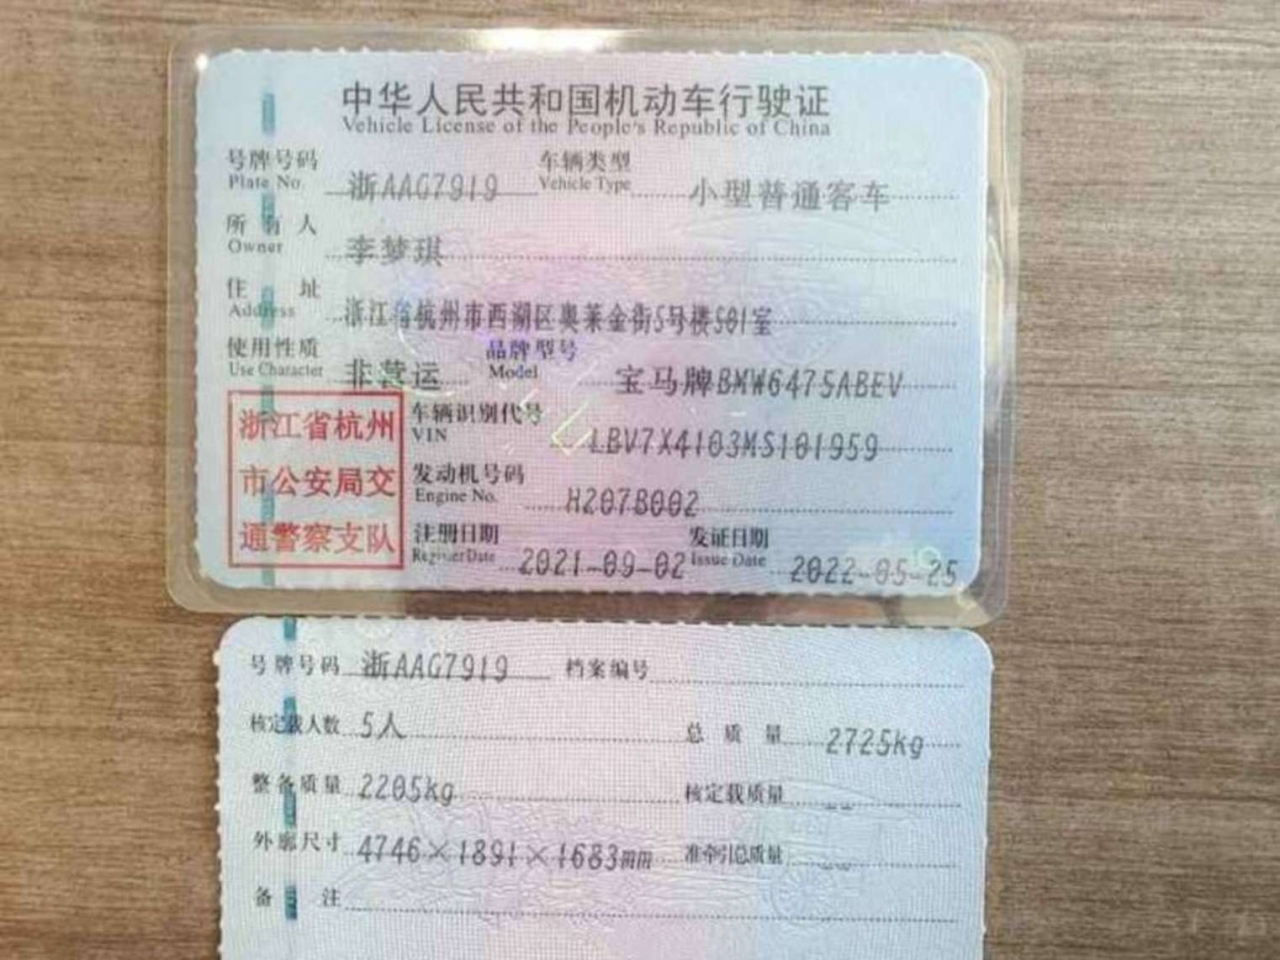 中华人民共和国机动车行驶证
Vehicle License of the People's Republic of China
号牌号码 浙AAG7919 车辆类型 小型普通客车
Plate No. Vehicle Type
所有人 李梦琪
Owner
住址 浙江省杭州市西湖区奥莱金街5号楼501室
Address
使用性质 非营运 品牌型号 宝马牌BMW6475ABEV
Use Character Model
浙江省杭州
市公安局交
通警察支队
车辆识别代号 LBV7X4103MS101959
VIN
发动机号码 H207B002
Engine No.
注册日期 2021-09-02 发证日期 2022-05-25
Register Date Issue Date
号牌号码 浙AAG7919 档案编号
核定载人数 5人 总质量 2725kg
整备质量 2205kg 核定载质量 --
外廓尺寸 4746×1891×1683mm 准牵引总质量 --
备注